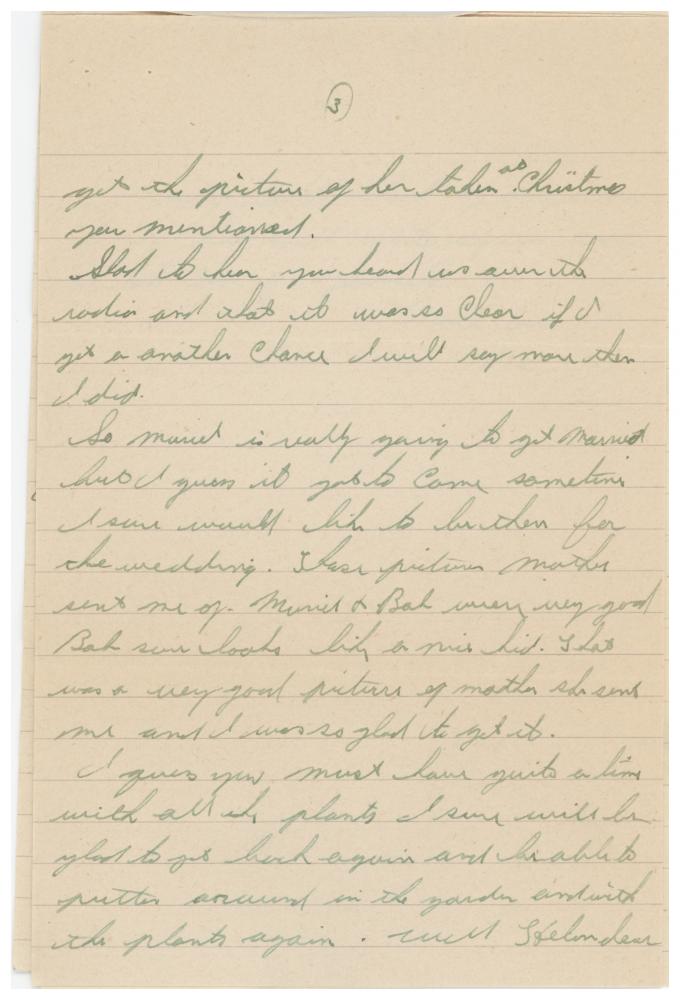 3
get the picture of her taken at Christmas
you mentioned.
Glad to hear you heard us over the
radio and that it was so clear if I
get a another chance I will say more then
I did.
So Muriel is really going to get married
but I guess it got to come sometime
I sure would like to be there for
the wedding. Those pictures mother
sent me of Muriel & Bob were very good
Bob sure looks like a nice kid. That
was a very good picture of mother she sent
me and I was so glad to get it.
I guess you must have quite a time
with all the plants I sure will be
glad to get back again and be able to
putter around in the garden and with
the plants again. Well Helen dear